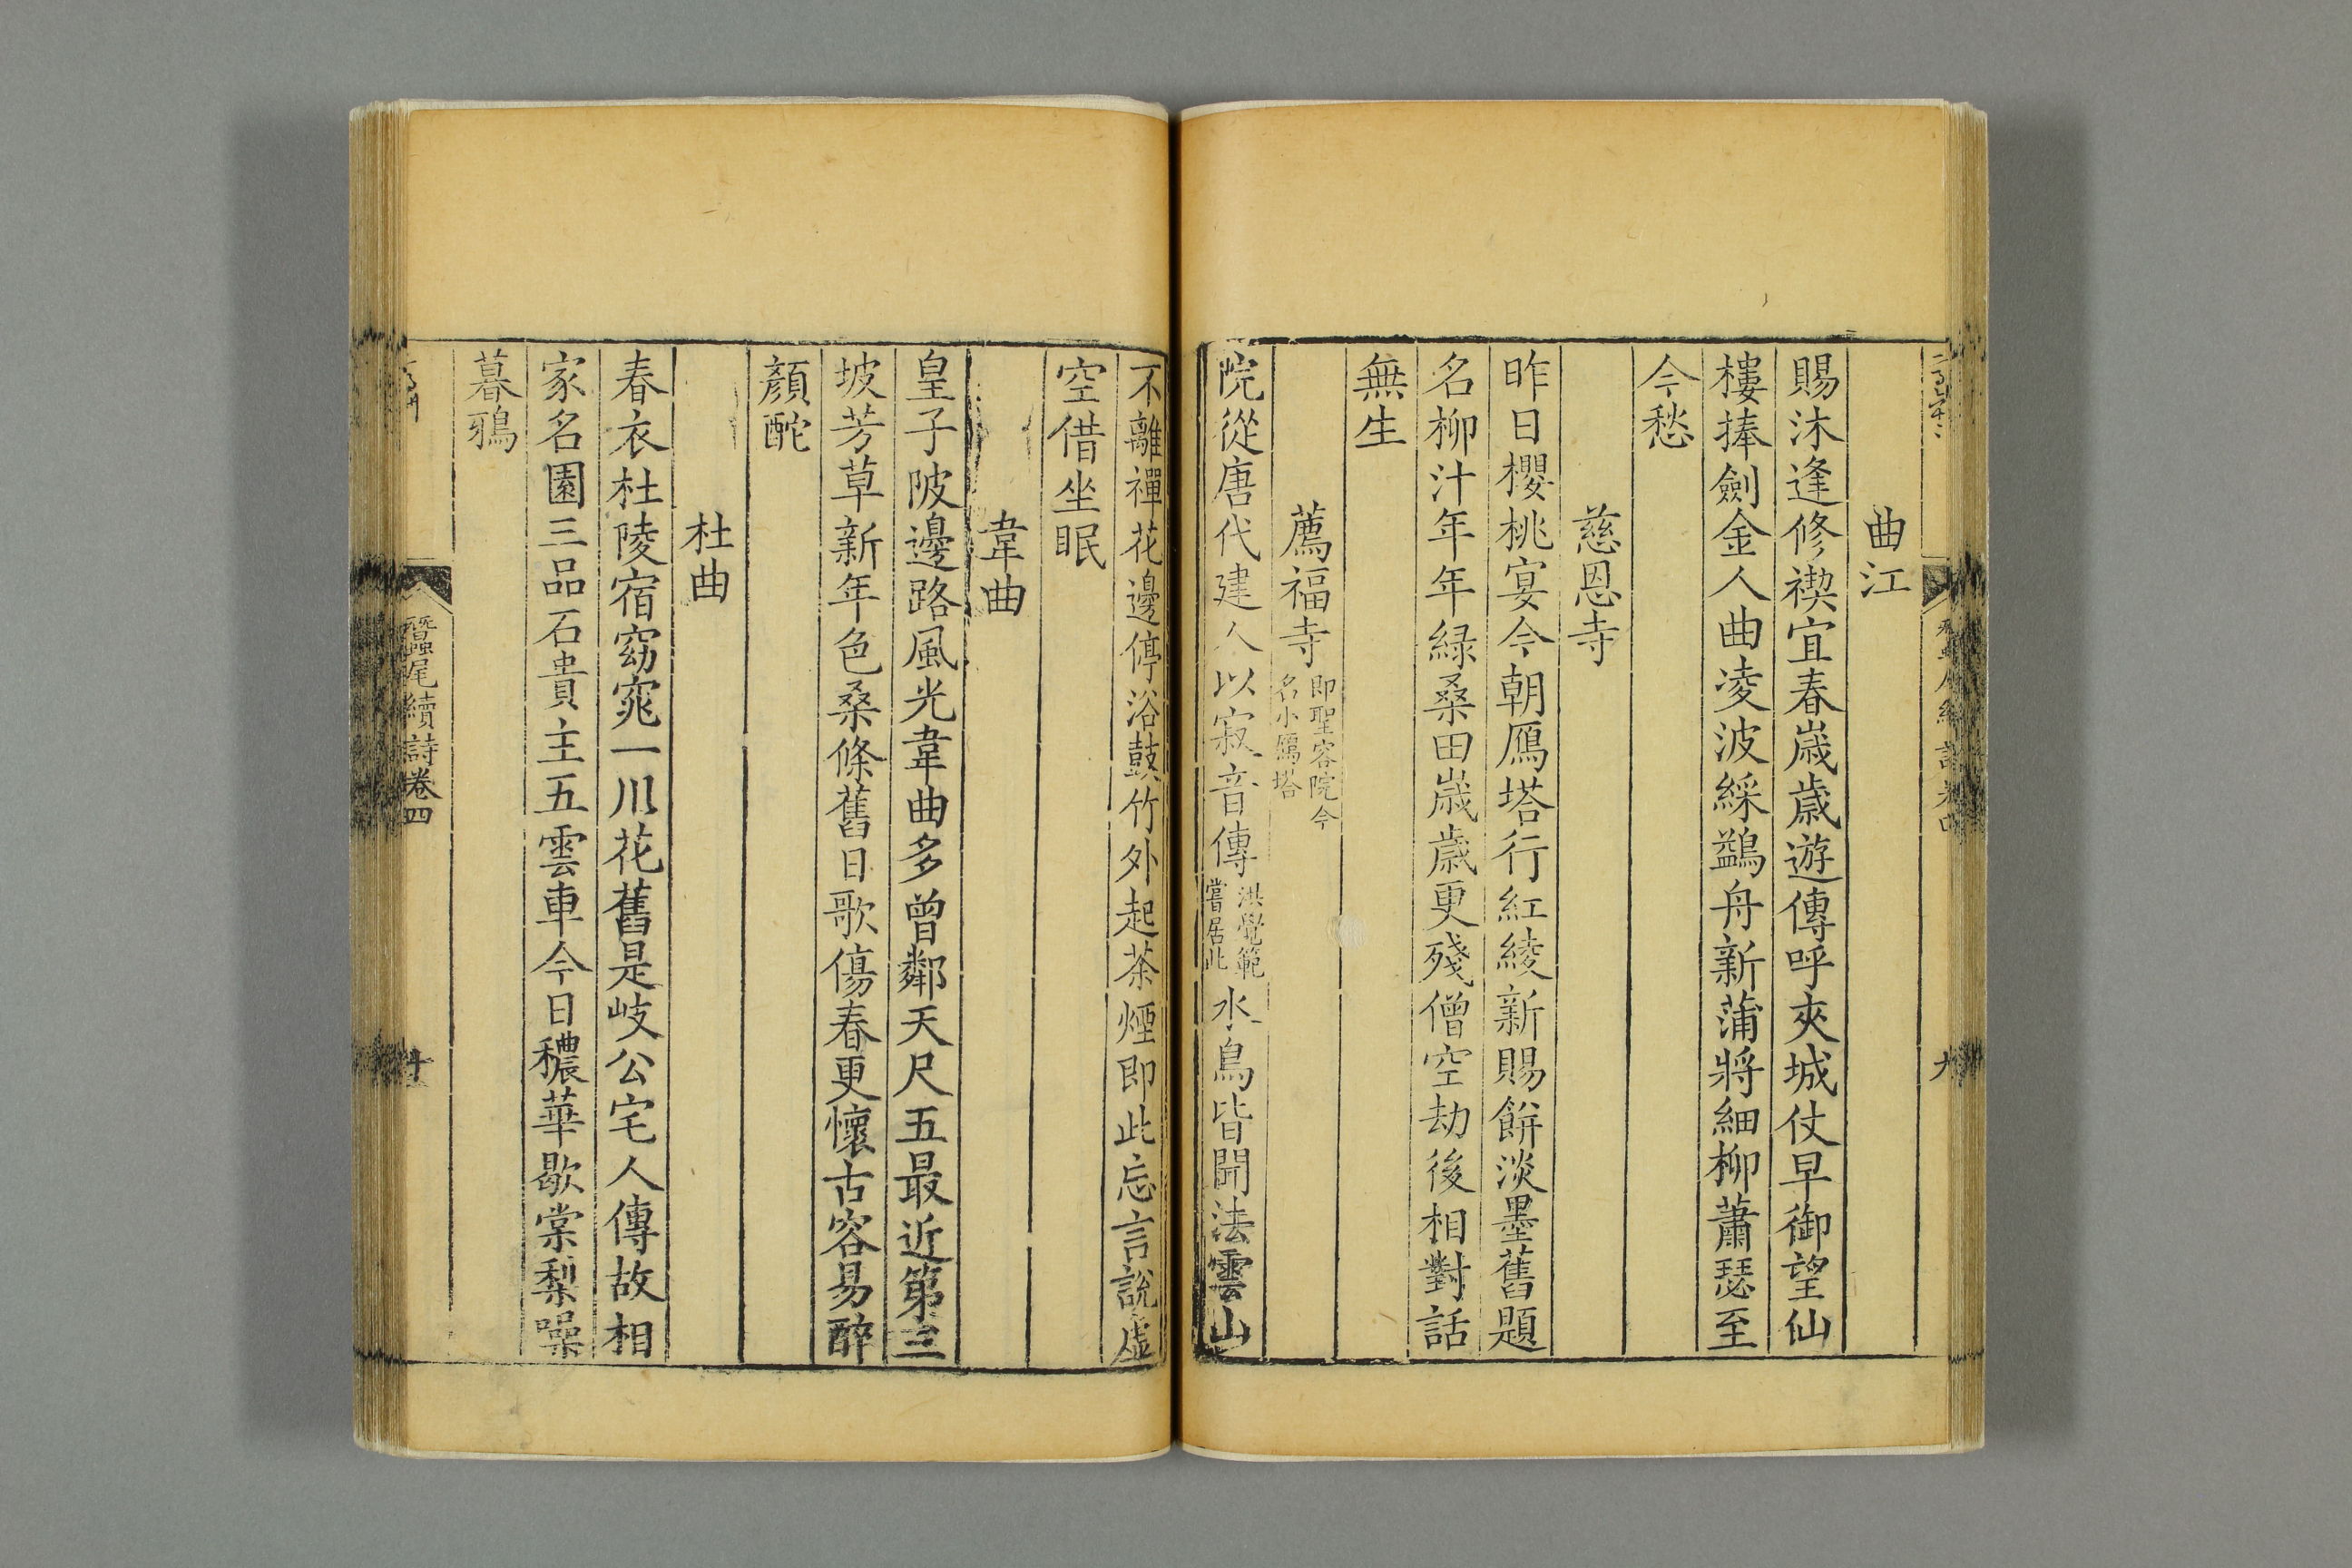 曲江
賜沐逢修禊宜春歲歲遊傳呼夾城仗早御望仙
樓捧劍金人曲凌波綵鷁舟新蒲將細柳蕭瑟至
今愁
慈恩寺
昨日櫻桃宴今朝鴈塔行紅綾新賜餅淡墨舊題
名柳汁年年綠桑田歲歲更殘僧空劫後相對話
無生
薦福寺即聖容院今名小鴈塔
院從唐代建人以寂音傳洪覺範嘗居此水鳥皆聞法雲山
不離禪花邊停浴鼓竹外起茶煙即此忘言說虛
空借坐眠
韋曲
皇子陂邊路風光韋曲多曾鄰天尺五最近第三
坡芳草新年色桑條舊日歌傷春更懷古容易醉
顏酡
杜曲
春衣杜陵宿窈窕一川花舊是岐公宅人傳故相
家名園三品石貴主五雲車今日穠華歇棠梨噪
暮鴉
蠶尾續詩卷四
十